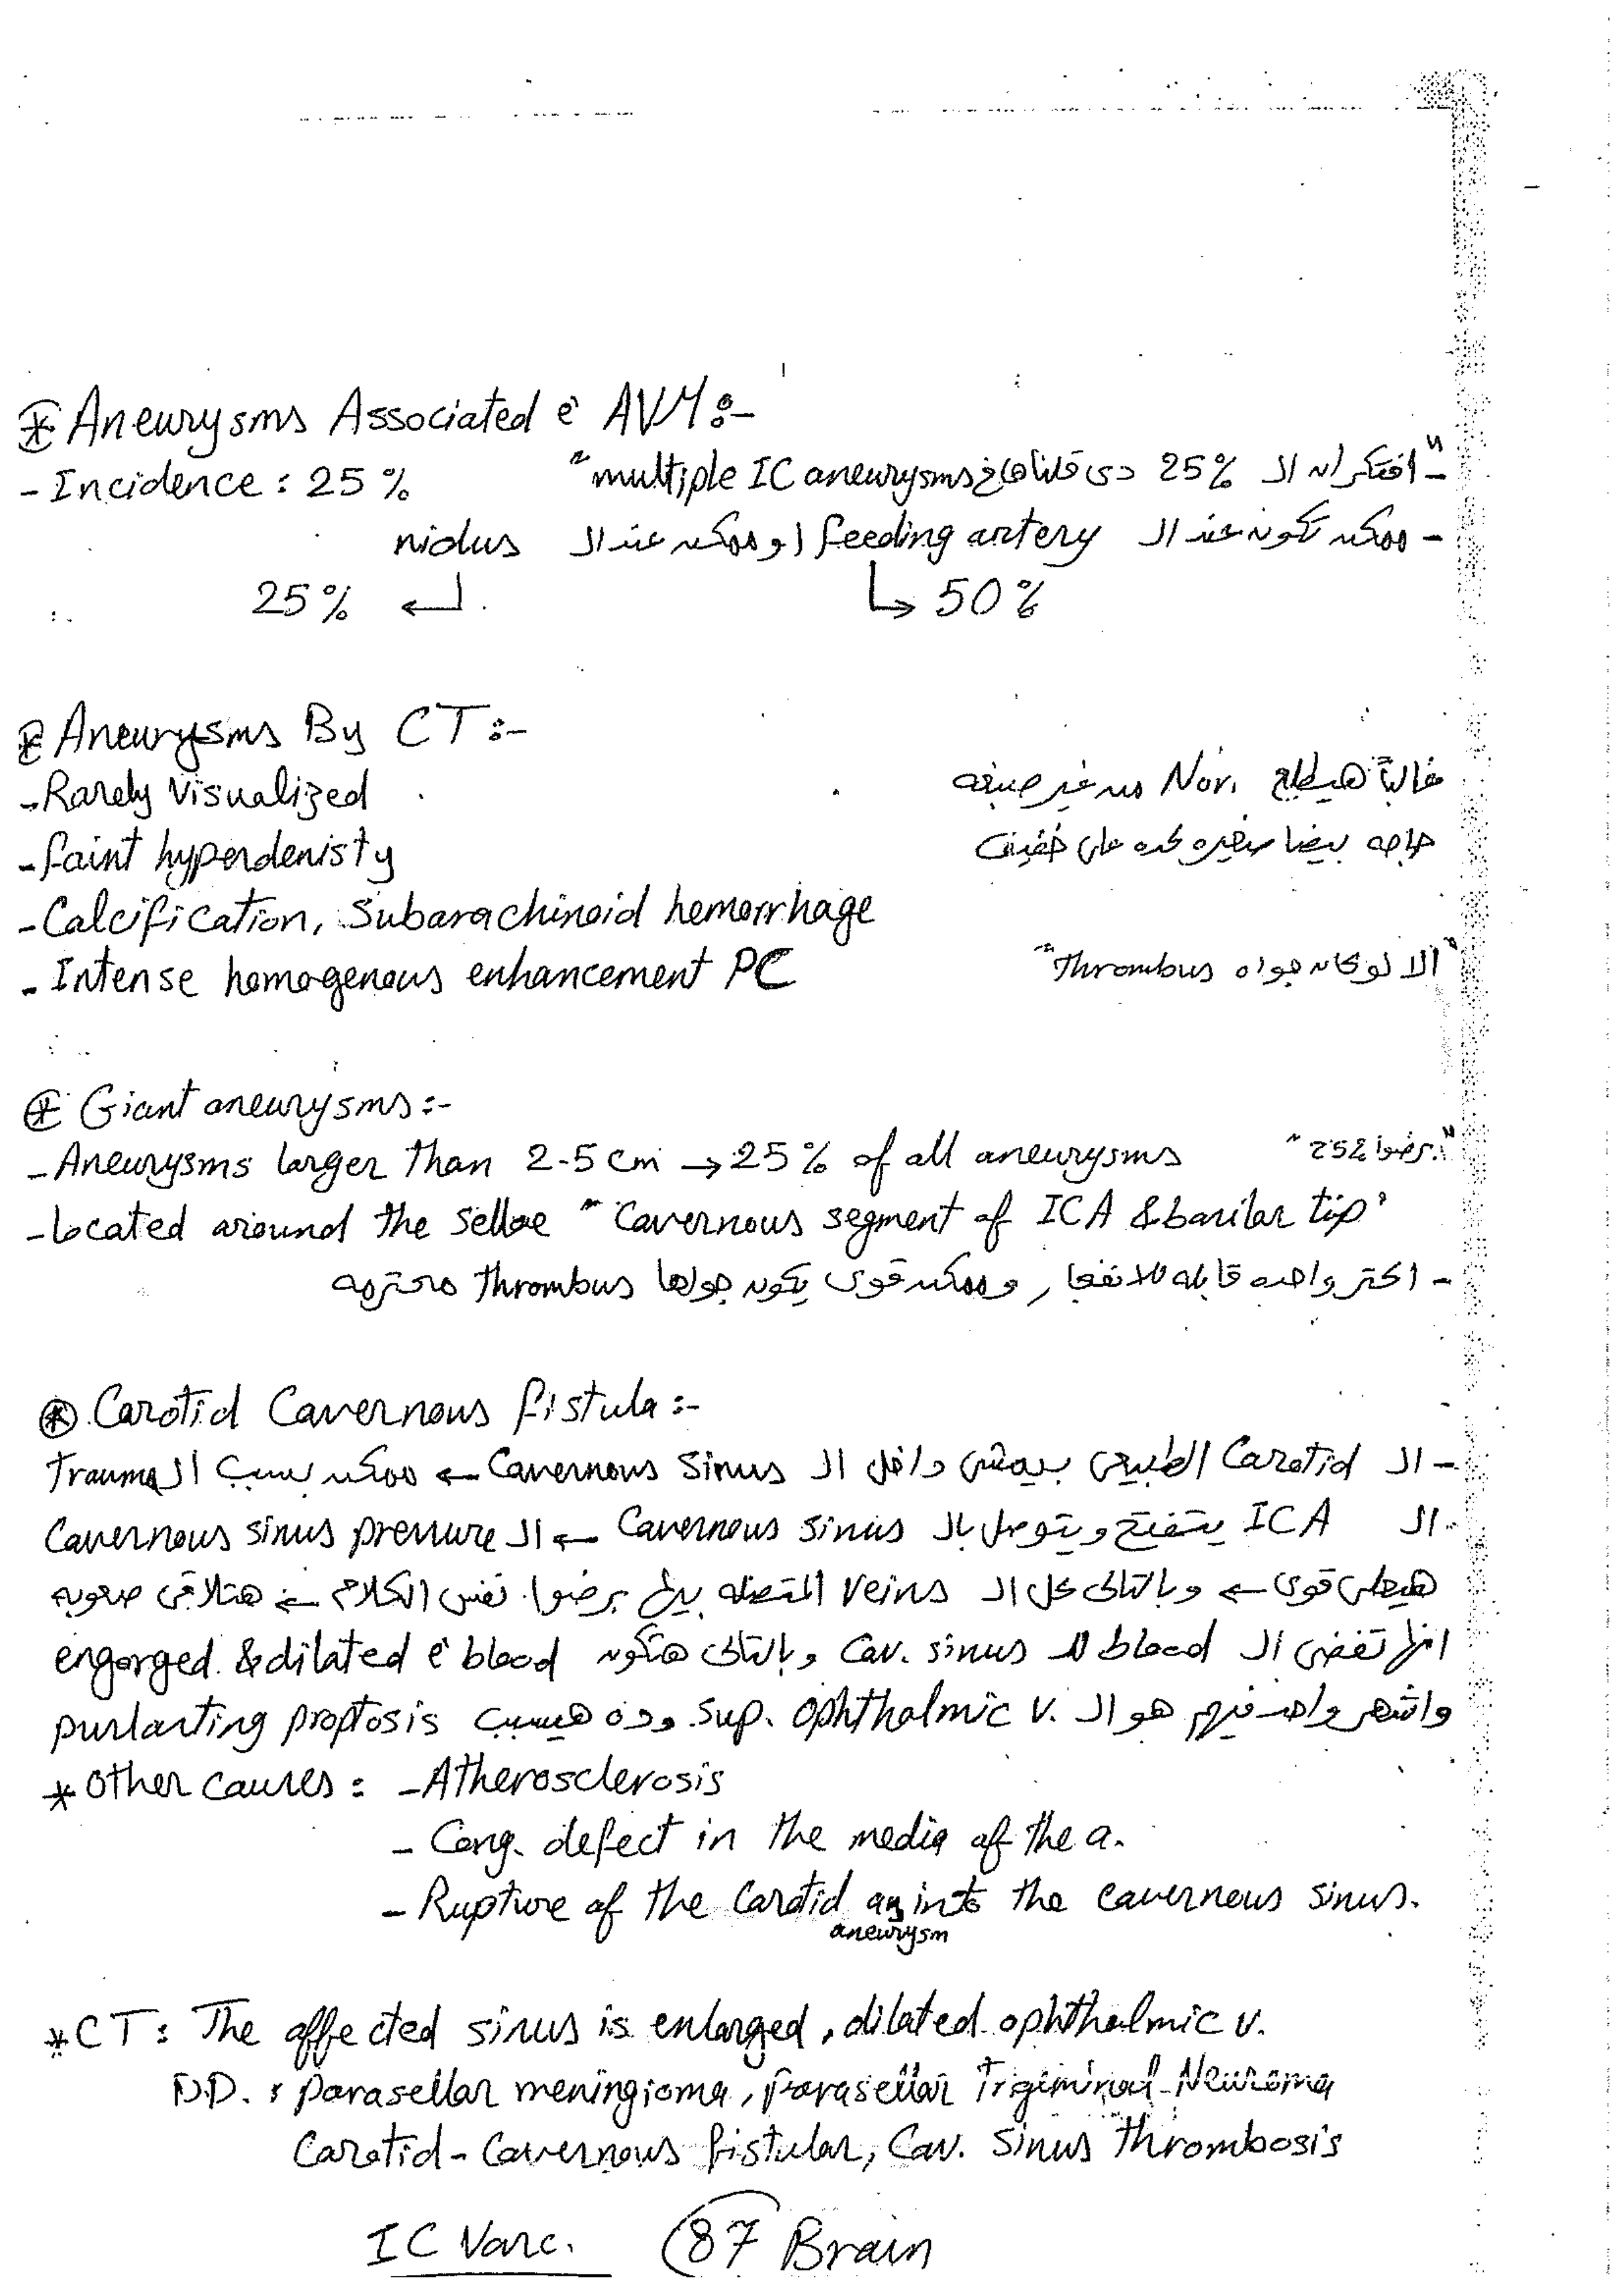 * Aneurysms Associated c̄ AVM :-
- Incidence : 25 % - "افتكر ان ال 25% دى قلناها في multiple IC aneurysms"
- ممكن تكون عند ال feeding artery او ممكن عند ال nidus
25% ↵ ↳ 50%
* Aneurysms By CT :-
- Rarely visualized غالباً هيطلع Nor. من غير صبغه
- faint hyperdenisty حاجه بيضا صغيره كده على خفيف
- Calcification, Subarachinoid hemorrhage
- Intense homogenous enhancement PC "الا لو كان جواه Thrombus"
* Giant aneurysms :-
- Aneurysms larger than 2.5 cm → 25 % of all aneurysms "برضوا 25%"
- located around the sellae "Cavernous segment of ICA & basilar tip"
- اكتر واحده قابله للانفجار, وممكن قوى يكون جواها thrombus محترمه
* Carotid Cavernous fistula :-
- ال Carotid الطبيعى بيمشى داخل ال Cavernous Sinus ← ممكن بسبب ال Trauma
ال ICA يتفتح ويتوصل بال Cavernous sinus ← ال Cavernous sinus pressure
هيعلى قوى ← وبالتالى كل ال veins المتصله بيه برضوا نفس الكلام ← هتلاقى صعوبه
انها تفضى ال blood لل Cav. sinus وبالتالى هتكون engorged & dilated c̄ blood
واشهر واحد فيهم هو ال Sup. ophthalmic v. وده هيسبب purlasting proptosis
* Other causes : - Atherosclerosis
- Cong. defect in the media of the a.
- Rupture of the Carotid an into the cavernous sinus.
aneurysm
* CT : The affected sinus is enlarged, dilated ophthalmic v.
D.D. : parasellar meningioma, parasellar Trigiminal Neuroma
Carotid - Cavernous fistular, Cav. Sinus thrombosis
IC Vasc. 87 Brain